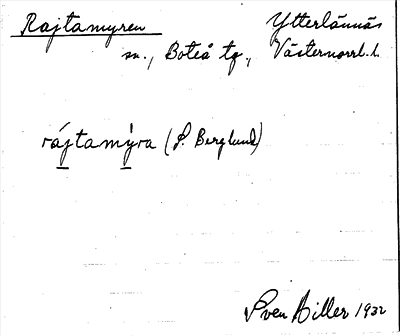 Rajtamyren Ytterlännäs
sn., Boteå tg., Västernorrl. l.
rájtamýra (P. Berglund)
Sven Hiller 1932